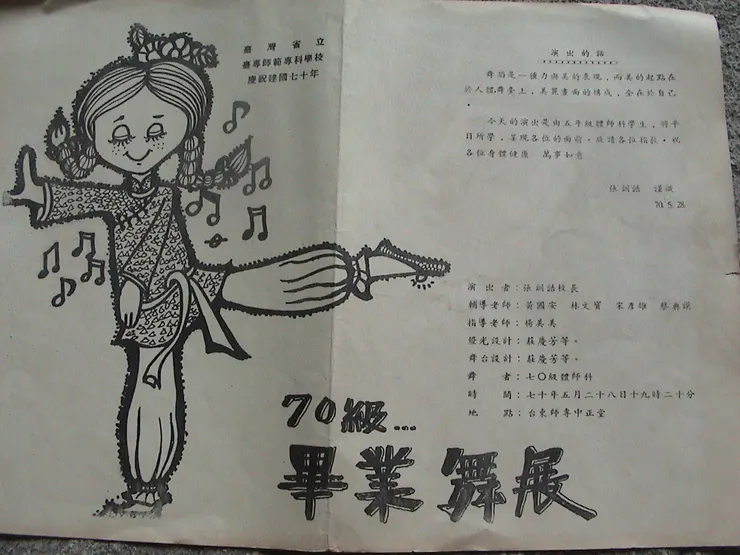 臺灣省立
臺東師範專科學校
慶祝建國七十年
70級...
畢業舞展
演出的話
舞蹈是一種力與美的表現,而美的起點在
於人體舞臺上,美麗畫面的構成,全在於自己
。
今天的演出是由五年級體師科學生,將平
日所學,呈現各位的面前。敬請各位指教,祝
各位身體健康 萬事如意
張訓話 謹識
70.5.28
演出者:張訓話校長
輔導老師:黃國安 林文寶 宋彥雄 蔡典謨
指導老師:楊美美
燈光設計:莊慶芳等。
舞台設計:莊慶芳等。
舞者:七〇級體師科
時間:七十年五月二十八日十九時二十分
地點:台東師專中正堂